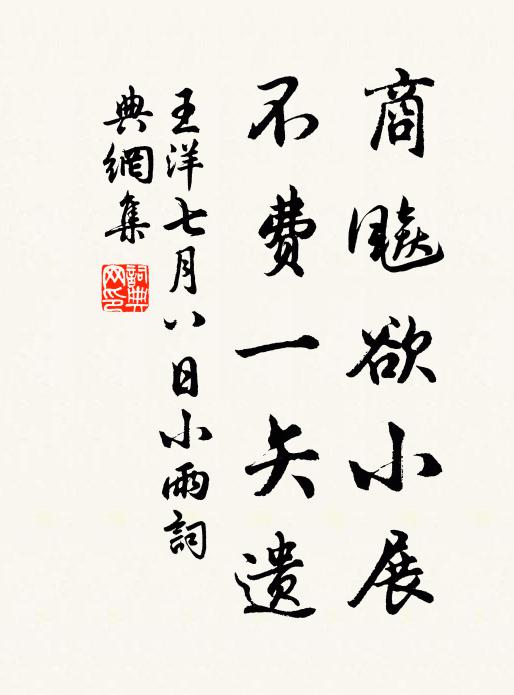 商飈欲小展
不費一矢遺
王洋七月八日小雨詞
典網集
詞典
网印